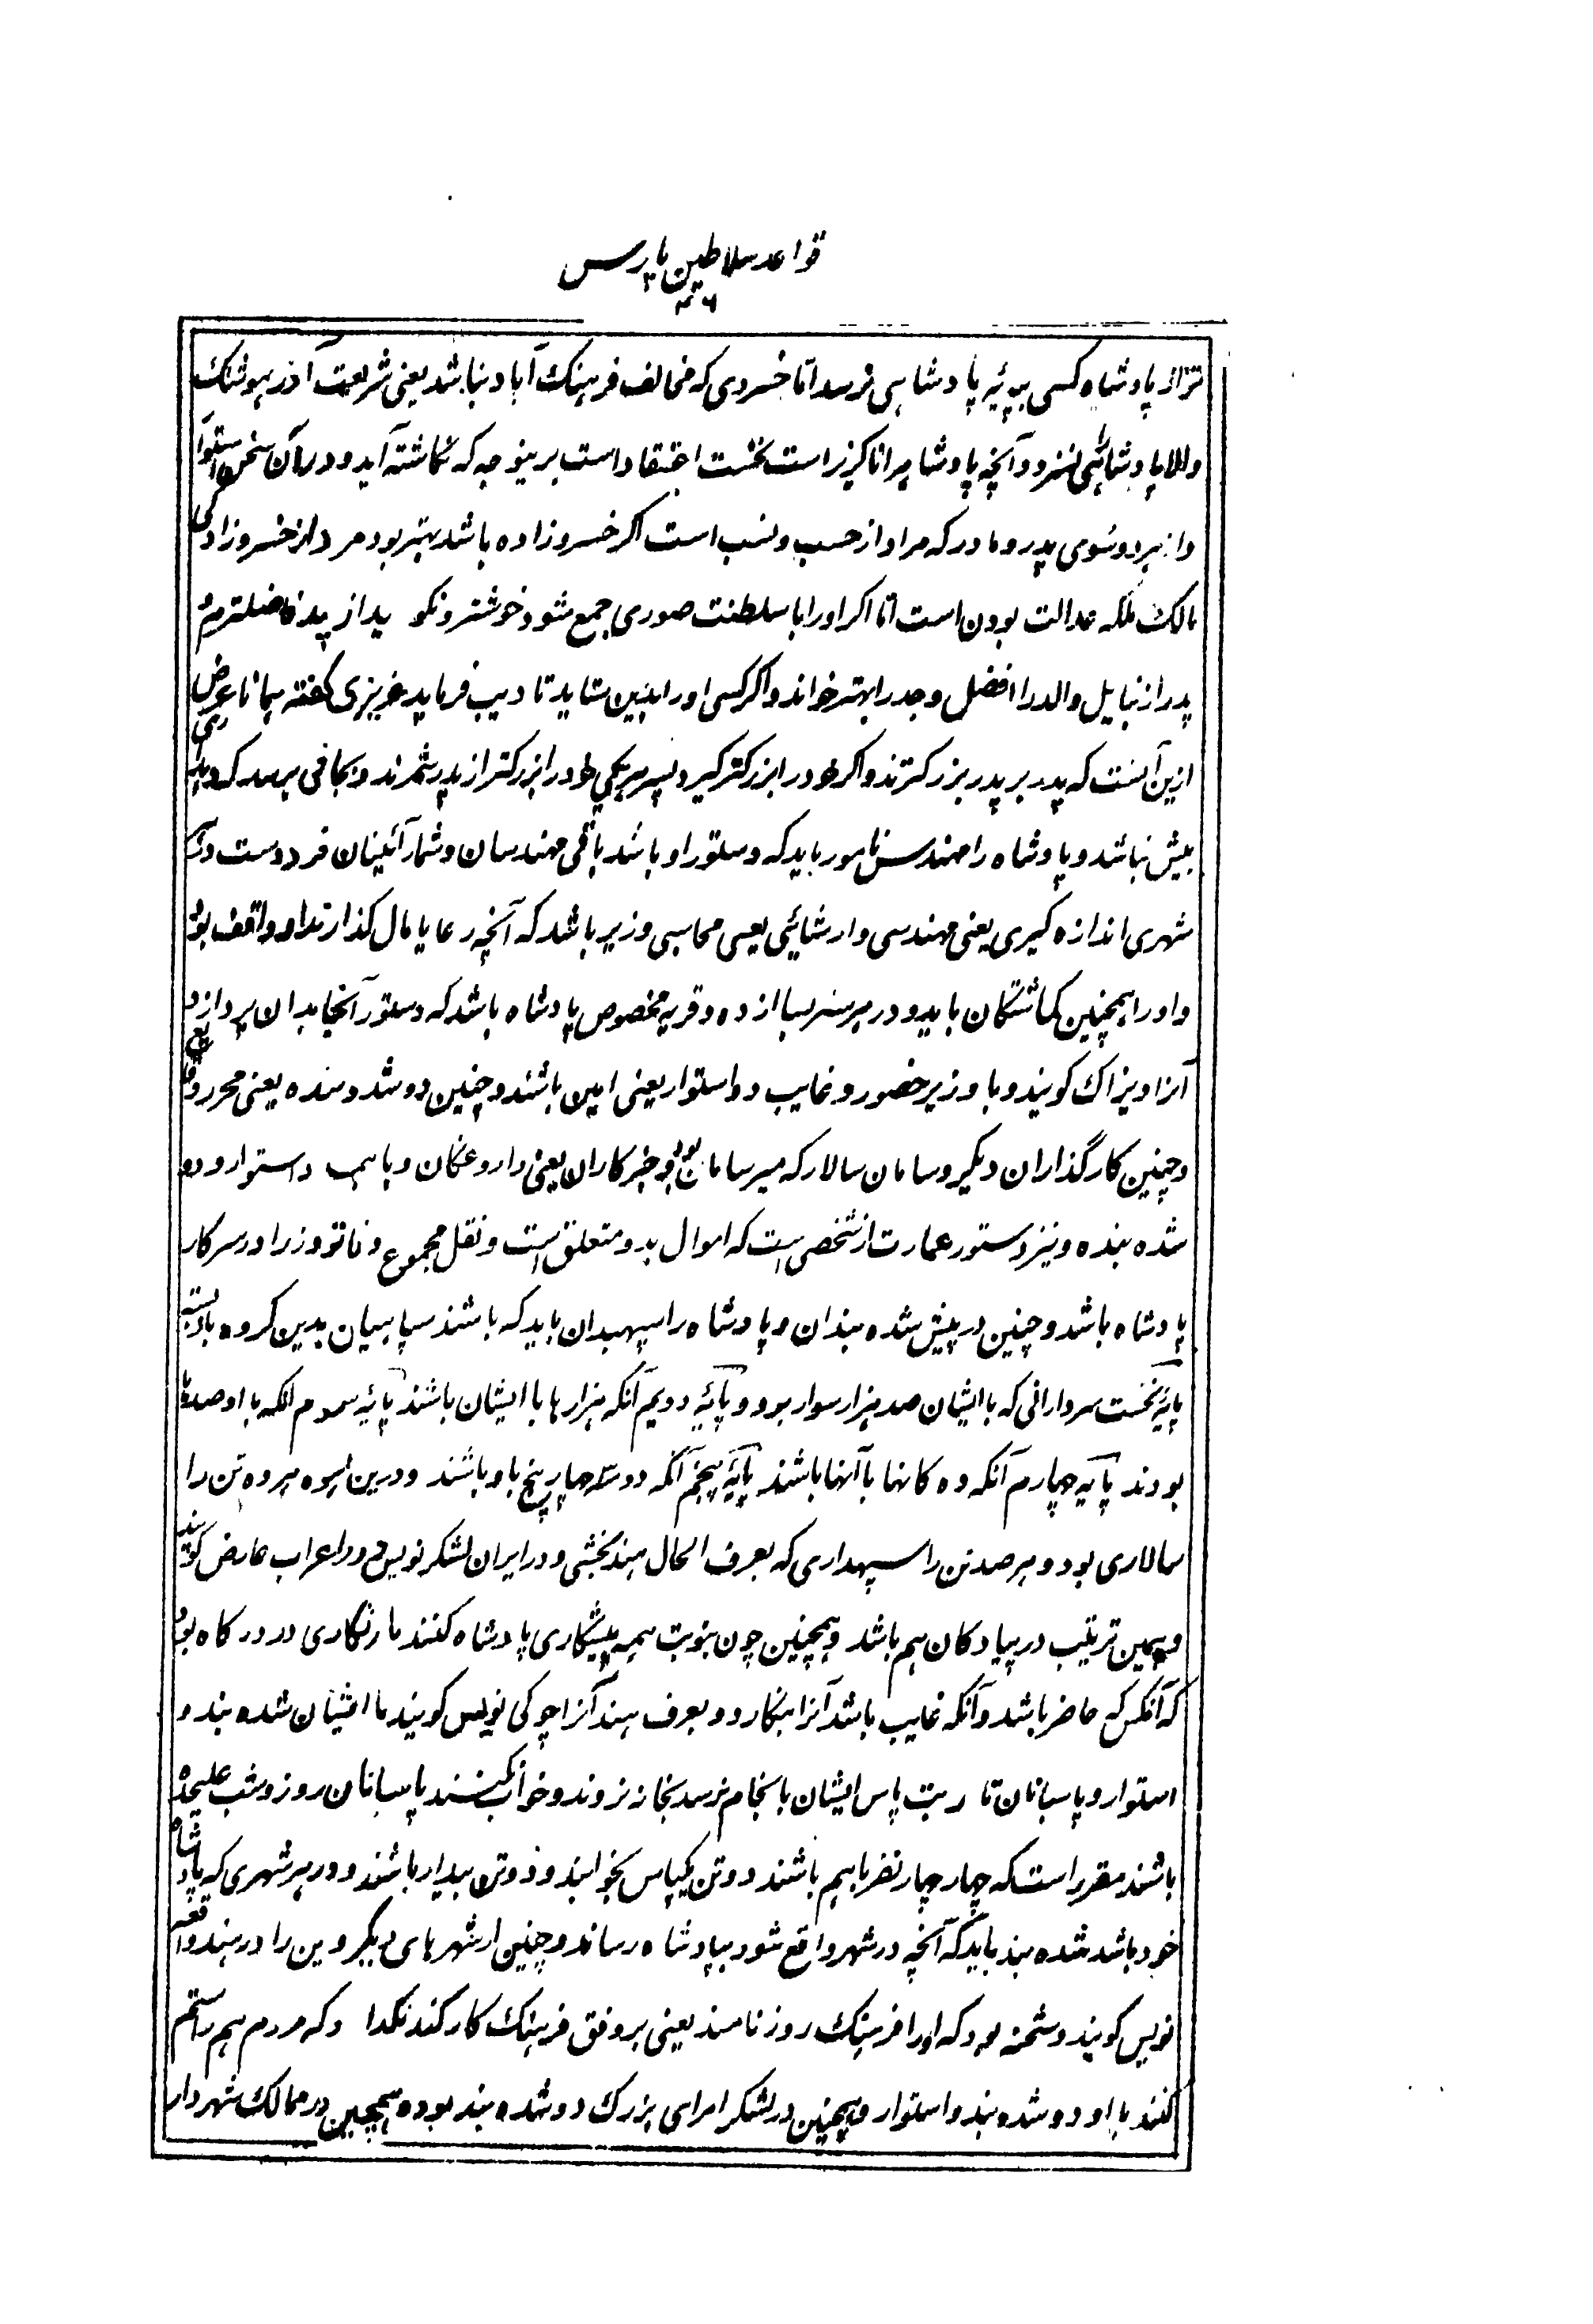 قواعد سلاطین پارس
تر از پادشاه کسی بپائیه پادشاهی نرسد اما خسروی که مخالف فرهنک آباد نباشد یعنی شریعت آذر هوشنک
والا پادشاهی را نسزد و آنچه پادشاهرا ناکزیر است نخست اعتقاد است برینوجه که نکاشته آید و در آن سخن استوار
و از هر دو سوی پدر و مادر که مراد از حسب و نسب است اکر خسرو زاده باشد بهتر بود مراد از خسرو زادکی
مالک ملکه عدالت بودن است اما اکر او را با سلطنت صوری جمع شود خوشتر و نکو ید از پدر فاضلتر
پدر از نبایل والد را افضل و جد را بهتر خواند و اکر کسی او را بدین ستاید تادیب فرماید عزیزی کفته همانا غرض
ازین آنست که پدر بر پدر بزرکترند و اکر خود را بزرکتر کیرد پسر هر یکی خود را بزرکتر از پدر شمرند و بجائی برسد که
بیش نباشد و پادشاه را مهندس نامور باید که دستور او باشد باقی مهندسان و شمار آئینان فرودست و
شهری اندازه کیری یعنی مهندسی و ارشائی یعنی محاسبی وزیر باشد که آنچه رعایا مال کذارند او واقف بود
و او را همچنین کماشتکان باید و در هر شهر بسا از ده و قریه مخصوص پادشاه باشد که دستور آنجا بدان پردازد و
آنرا ویژاک کویند و با وزیر حضور و غایب دو استوار یعنی امین باشند و چنین دو شدوسنده یعنی محرر وقایع
و چنین کارگذاران دیکر و سامان سالار که میر سامان بود و خبرکاران یعنی داروغکان و با همه دو استوار و دو
شده بنده و نیز دستور عمارت از شخصی است که اموال بدو متعلق است و نقل مجموع دفاتر وزرا در سرکار
پادشاه باشد و چنین در پیش شده بندان و پادشاه را سپهبدان باید که باشند سپاهیان بدین کروه بایسته
پائیه نخست سردارانی که با ایشان صد هزار سوار بود و پائیه دویم آنکه هزارها با ایشان باشند پائیه سوم آنکه با او صدها
بودند پائیه چهارم آنکه ده کانها با آنها باشند پائیه پنجم آنکه دو سه چهار پنج با او باشند و درین انبوه هر ده تن را
سالاری بود و هر صد تن را سپهداری که بعرف الحال هند بخشی و در ایران لشکر نویس و در اعراب عارض کویند
و همین ترتیب در پیادکان هم باشد و همچنین چون بنوبت همه پیشکاری پادشاه کنند بارنکاری در درکاه بود
که آنکس که حاضر باشد و آنکه غایب باشد آنرا بنکارد و بعرف هند آنرا چوکی نویس کویند با ایشان شده بند و
استوار و پاسبانان تا نوبت پاس ایشان بانجام نرسد بخانه نروند و خواب نکنند پاسبانان روز و شب علیحده
باشند مقرر است که چهار چهار نفر با هم باشند دو تن یکپاس بخوابند و دو تن بیدار باشند و در هر شهری که پادشاه
خود باشد شده بند باید که آنچه در شهر واقع شود بپادشاه رساند و چنین از شهرهای دیکر و این را در هند واقعه
نویس کویند و شحنه بود که او را فرهنک روز نامند یعنی بر وفق فرهنک کار کند نکذارد که مردم بهم ستم
کنند با او دو شده بند و استوار و همچنین در لشکر امرای بزرک دو شده بند بوده همچنین در ممالک شهردار